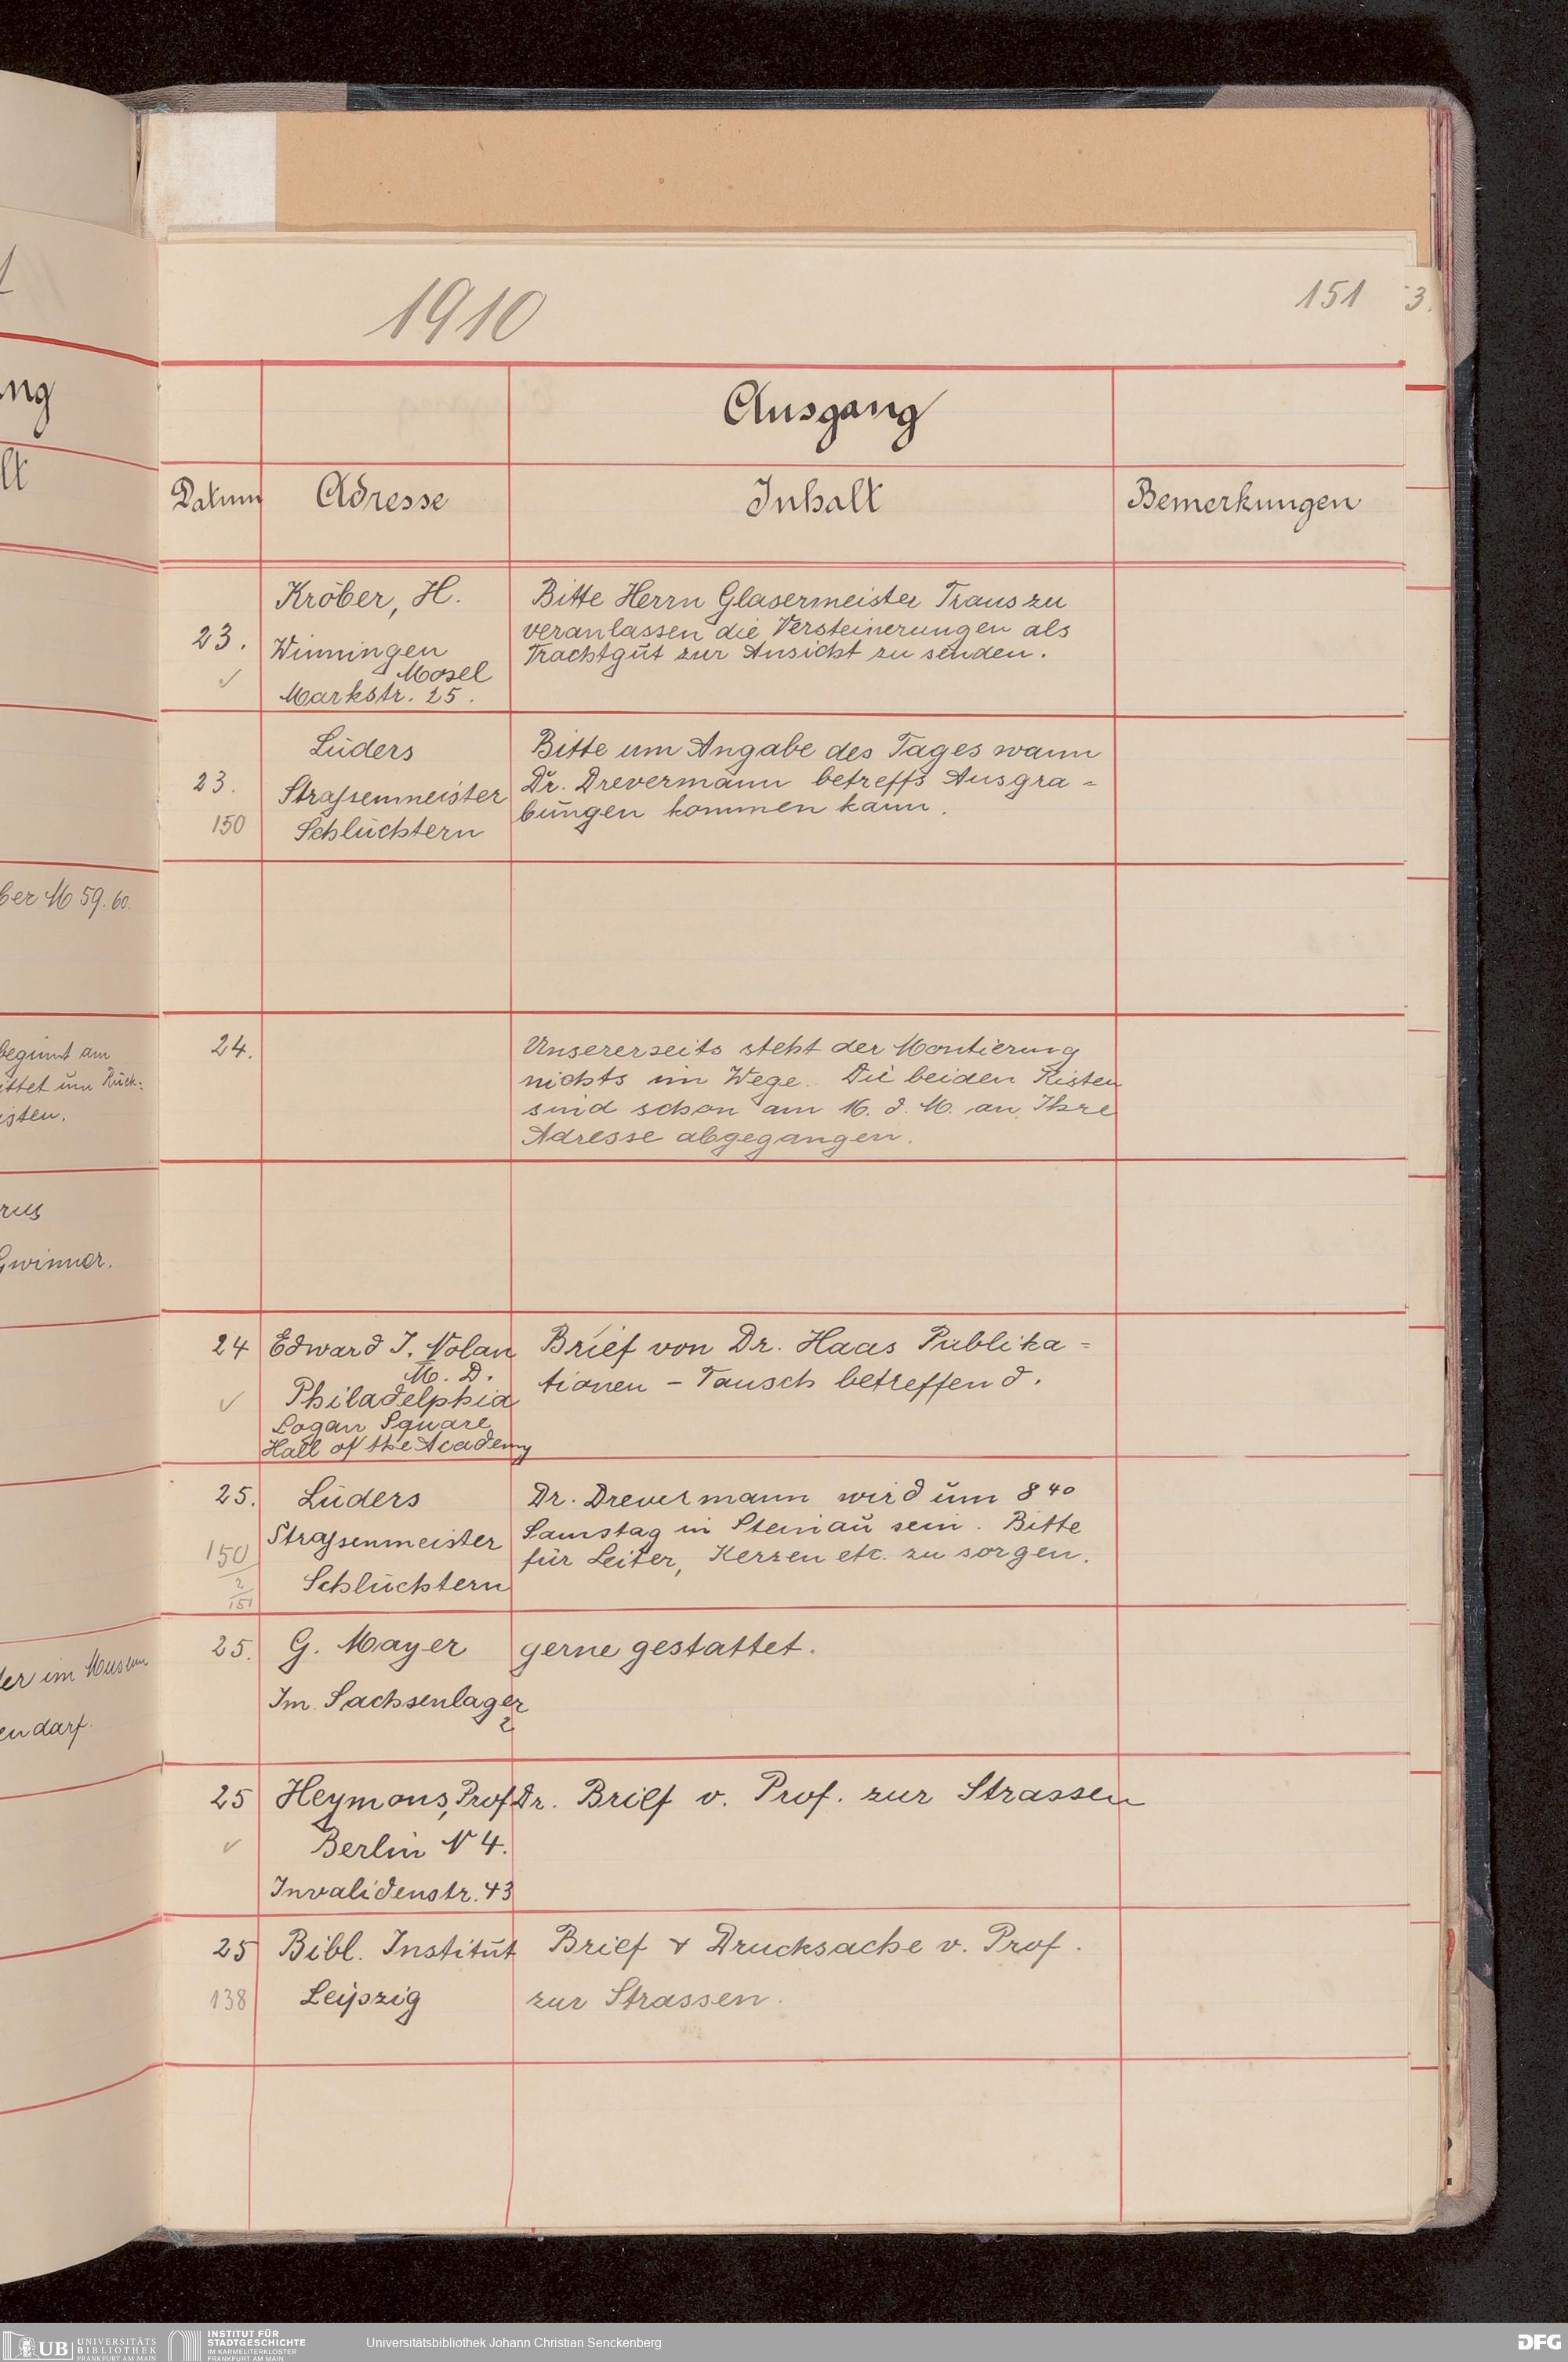 1910
151
3.
Ausgang
Datum
Adresse
Inhalt
Bemerkungen
23.
Kröber, H.
Winningen
Mosel
Markstr. 25.
Bitte Herrn Glasermeister Traus zu
veranlassen die Versteinerungen als
Frachtgut zur Ansicht zu senden.
23.
150
Lüders
Strassenmeister
Schlüchtern
Bitte um Angabe des Tages wann
Dr. Drevermann betreffs Ausgra=
bungen kommen kann.
24.
Unsererseits steht der Montierung
nichts im Wege. Die beiden Kisten
sind schon am 16. d. M. an Ihre
Adresse abgegangen.
24
Edward J. Nolan
M. D.
Philadelphia
Logan Square
Hall of the Academy
Brief von Dr. Haas Publika=
tionen - Tausch betreffend.
25.
150
2
151
Lüders
Strassenmeister
Schlüchtern
Dr. Drevermann wird um 8 40
Samstag in Steinau sein. Bitte
für Leiter, Kerzen etc. zu sorgen.
25.
G. Mayer
Im Sachsenlager
2
gerne gestattet.
25
Heymons, Prof Dr.
Berlin N 4.
Invalidenstr. 43
Brief v. Prof. zur Strassen
25
138
Bibl. Institut
Leipzig
Brief & Drucksache v. Prof.
zur Strassen.
ng
lt
ber M 59.60.
beginnt am
ittet um Rück=
isten.
rus
Gwinner.
er im Museum
en darf.
UB UNIVERSITÄTS
BIBLIOTHEK
FRANKFURT AM MAIN
INSTITUT FÜR
STADTGESCHICHTE
IM KARMELITERKLOSTER
FRANKFURT AM MAIN
Universitätsbibliothek Johann Christian Senckenberg
DFG